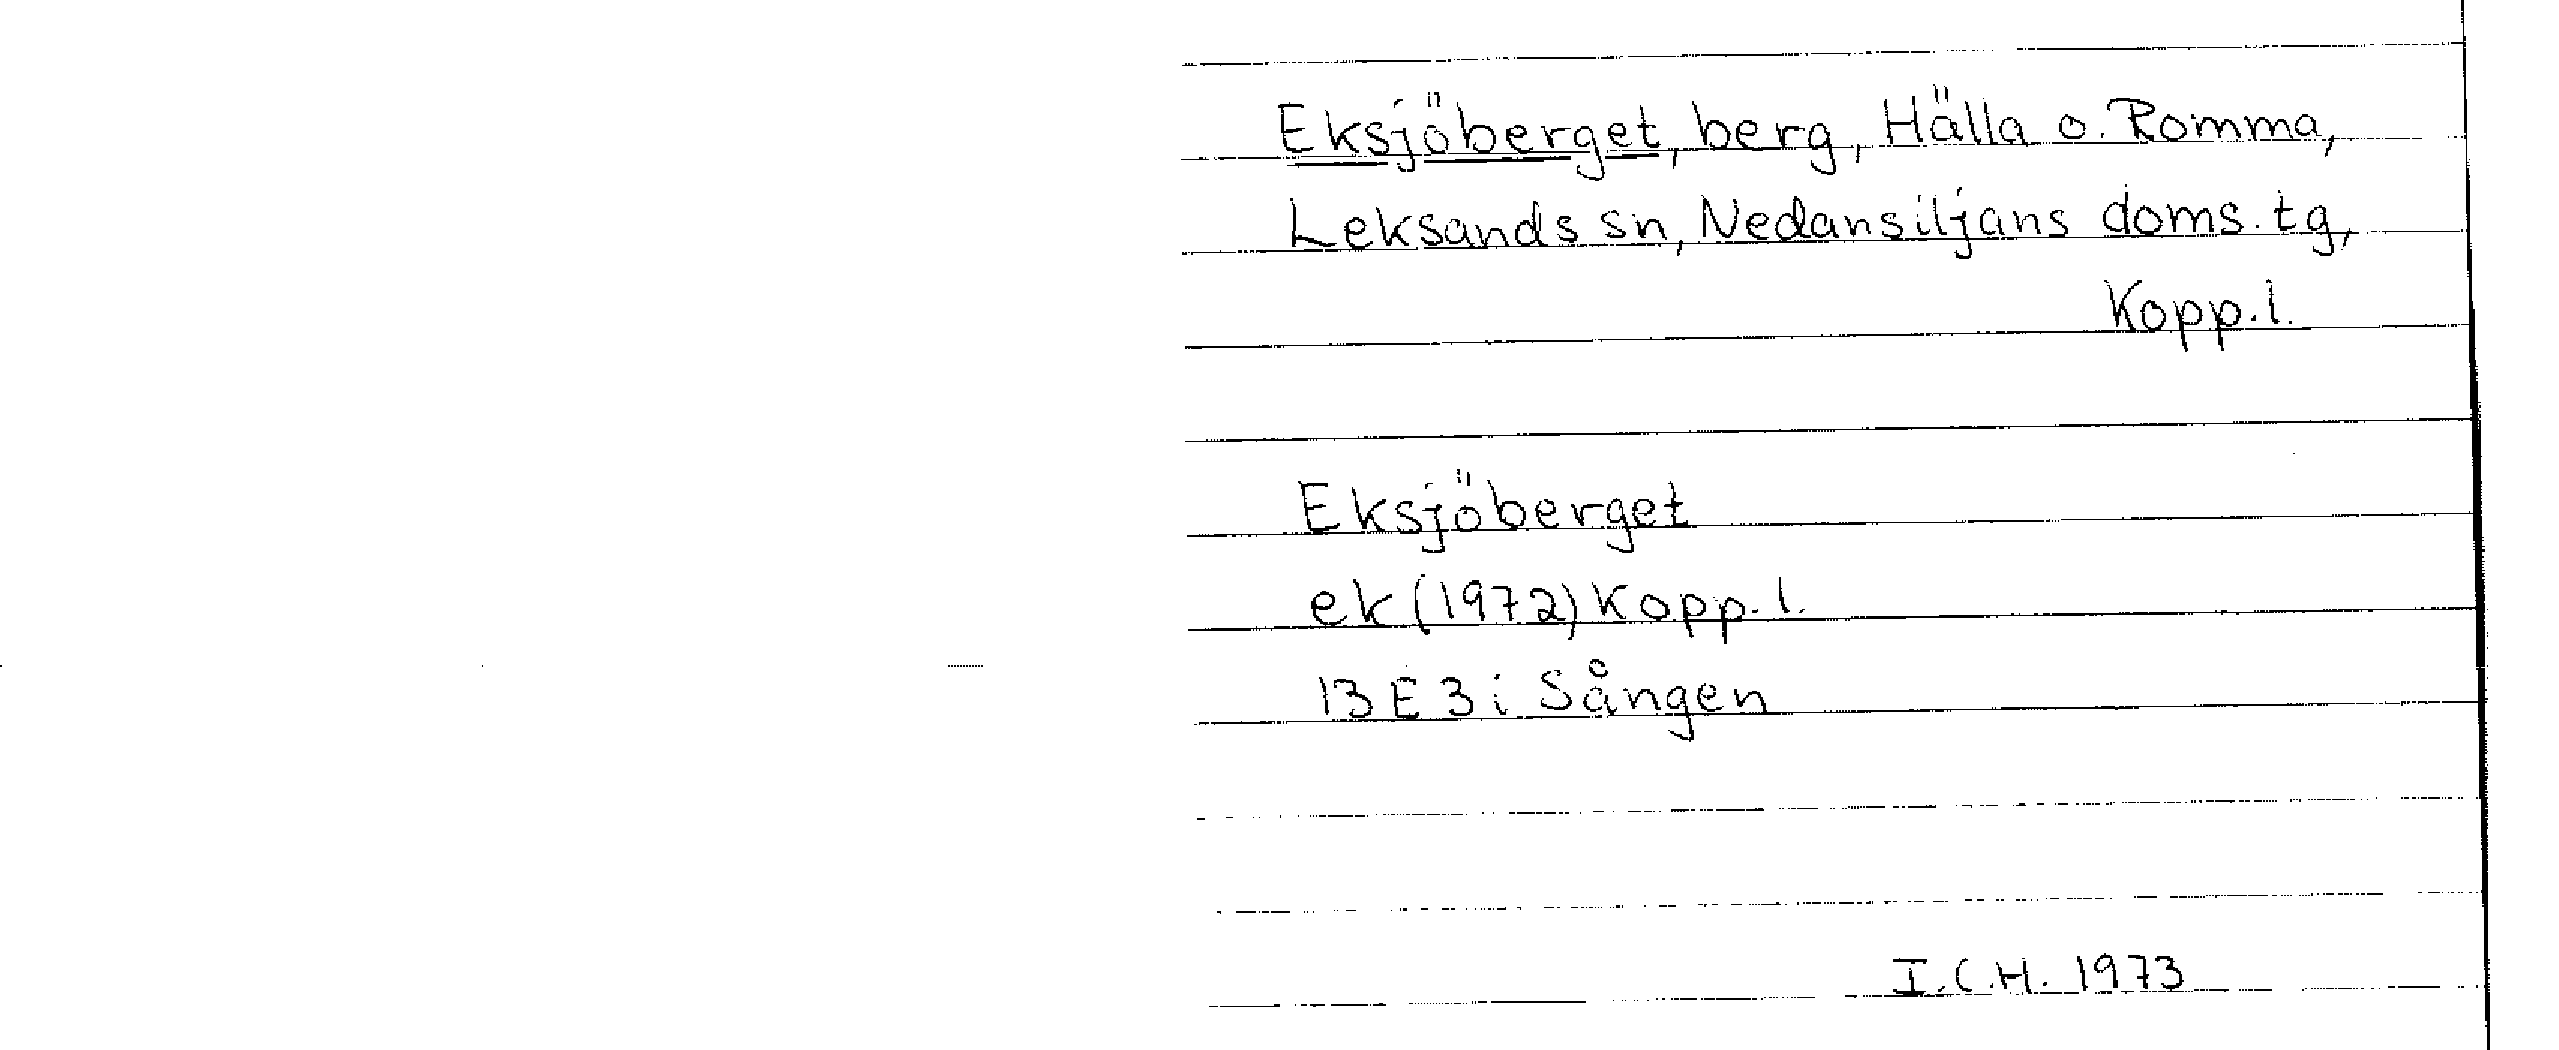 Eksjöberget, berg, Hälla o. Romma,
Leksands sn, Nedansiljans doms. tg,
Kopp.l.
Eksjöberget
ek (1972) Kopp. l.
13 E 3 i Sången
I.C.H. 1973